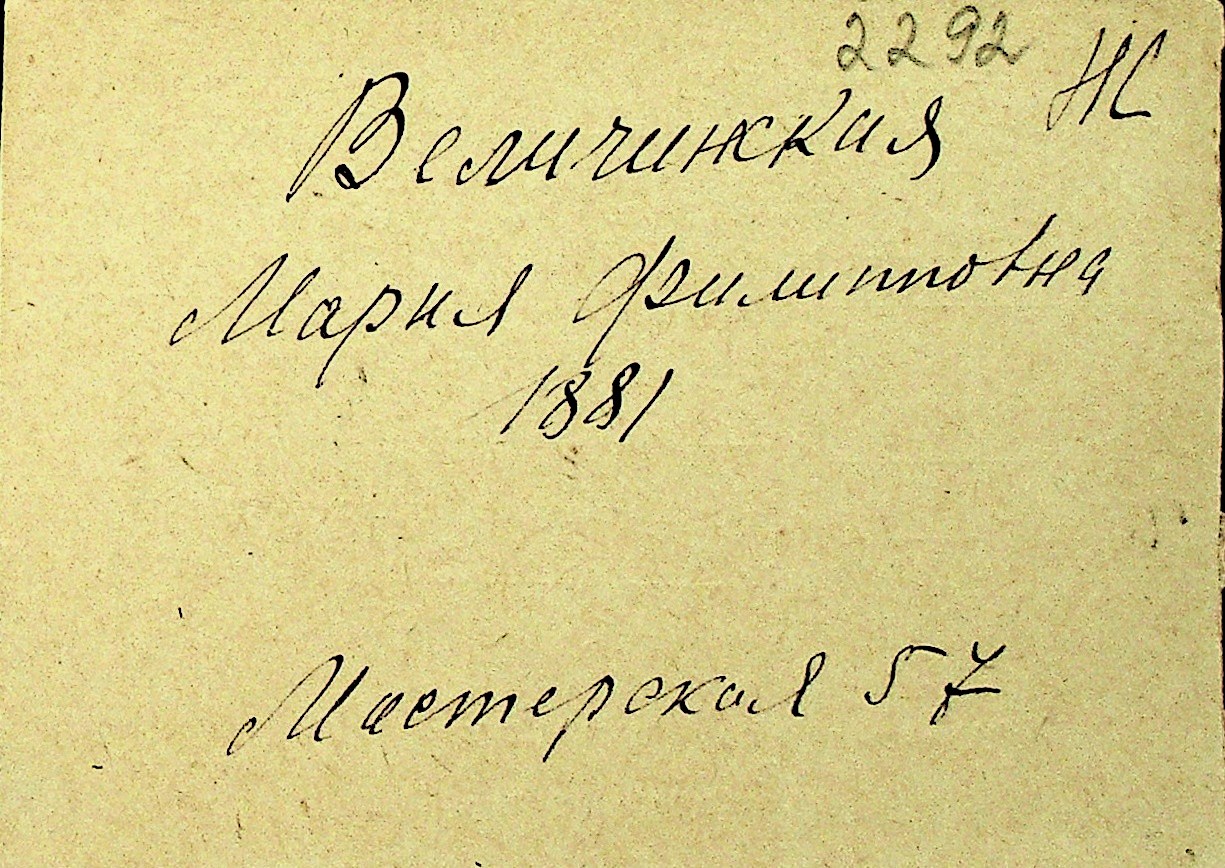 2292 Ж
Величинская
Мария Филипповна
1881
Мастерская 57